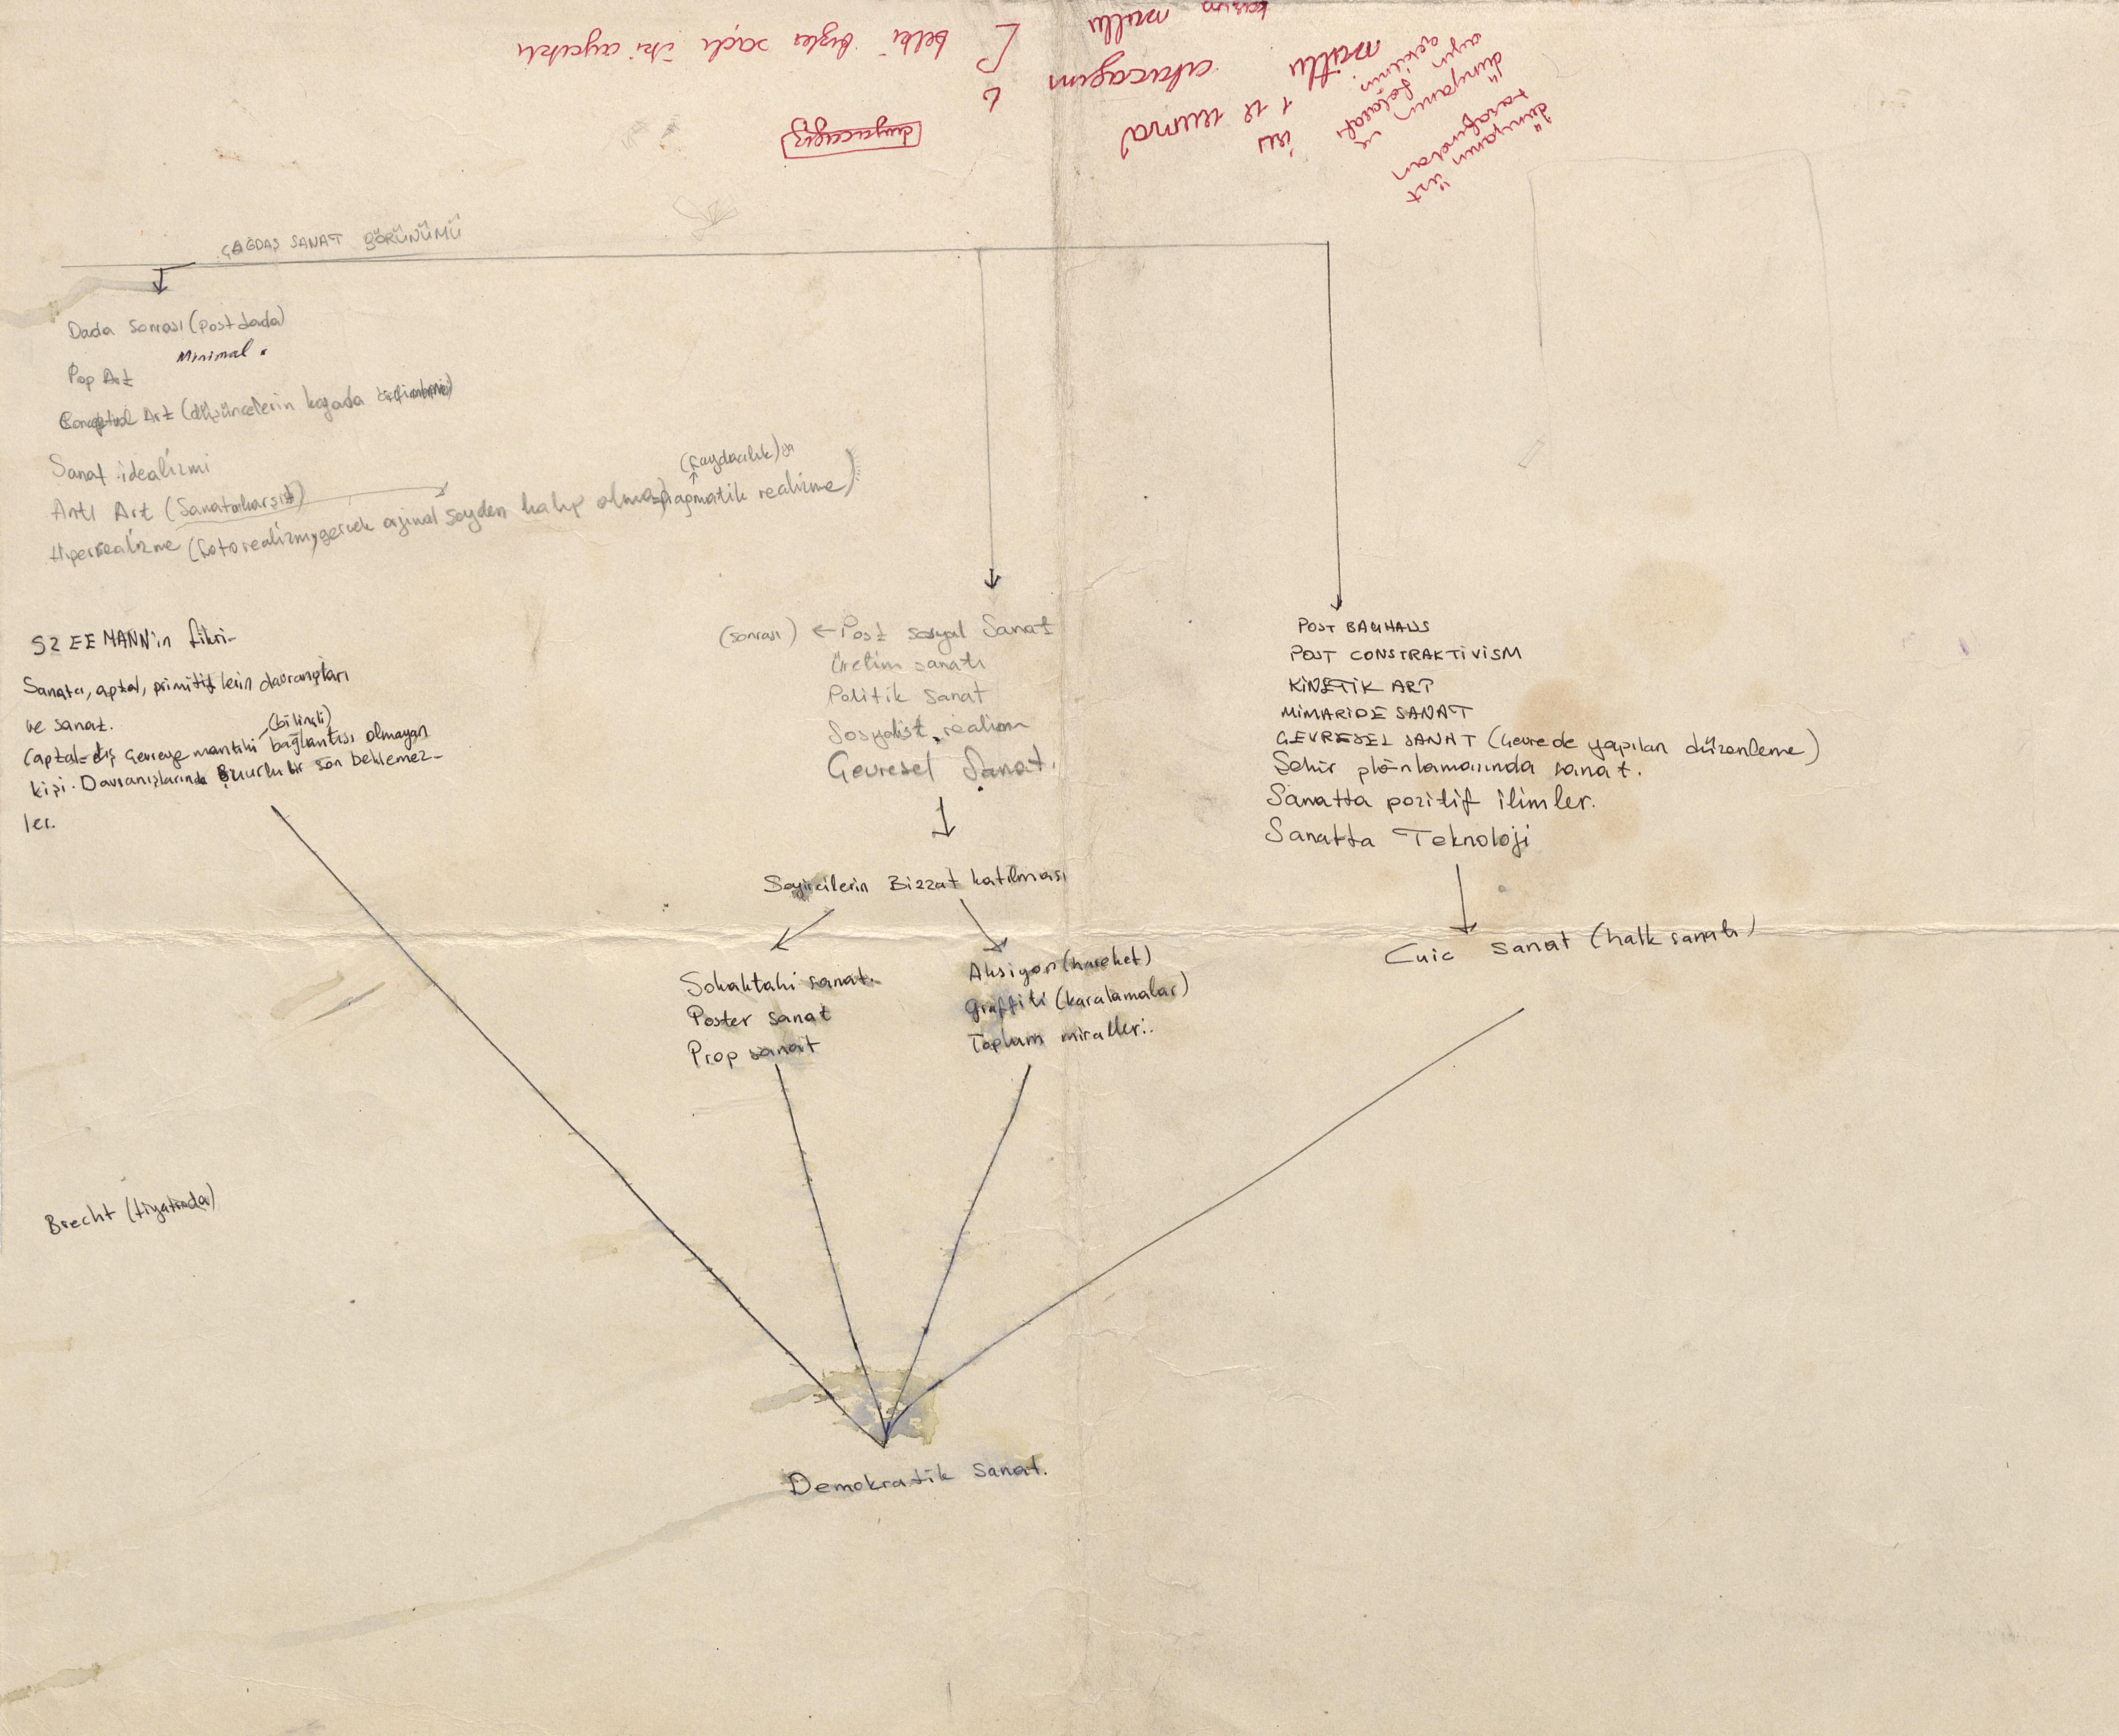 ÇAĞDAŞ SANAT GÖRÜNÜMÜ
Dada Sonrası (post dada)
Minimal.
Pop Art
Conceptual Art (düşüncelerin kafada
Sanat idealizmi
Anti Art (Sanatakarşıt)
(faydacılık)
Hiperrealizme (fotorealizm, gerçek orjinal şeyden kalıp alma) pragmatik realizme)
SZEEMANN'ın fikri-
Sanatcı, aptal, primitiflerin davranışları
ve sanat.
(bilinçli)
(aptal-dış çevreye mantıki bağlantısı olmayan
kişi. Davranışlarında şuurlu bir son beklemez-
ler.
Brecht (tiyatroda)
(sonrası) ← Post sosyal Sanat
Üretim sanatı
Politik sanat
Sosyalist realizm
Çevresel Sanat.
Seyircilerin Bizzat katılması
Sokaktaki sanat.
Poster sanat
Prop sanat
Aksiyon (hareket)
Graffiti (karalamalar)
Toplum miralleri.
POST BAUHAUS
POST CONSTRAKTIVISM
KİNETİK ART
MİMARİDE SANAT
ÇEVRESEL SANAT (Çevrede yapılan düzenleme)
Şehir plânlamasında sanat.
Sanatta pozitif ilimler.
Sanatta Teknoloji
Cuic sanat (halk sanatı)
Demokratik Sanat.
dünyanın üst
tarafından
dünyanın
mutlu
mutlu
belki